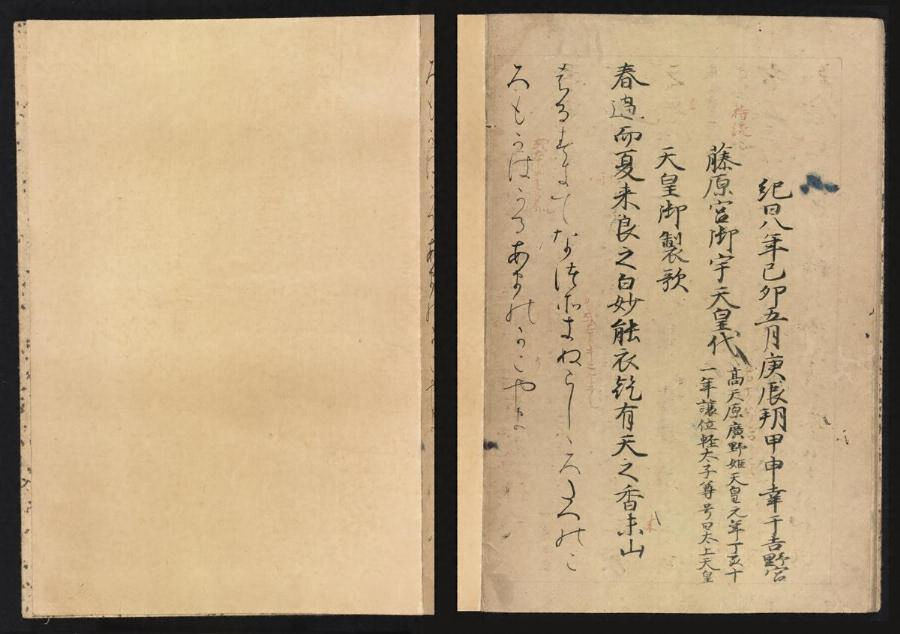 紀曰八年己卯五月庚辰朔甲申幸于吉野宮
藤原宮御宇天皇代
高天原廣野姫天皇元年丁亥十
一年譲位軽太子尊号曰太上天皇
天皇御製歌
春過而夏来良之白妙能衣乾有天之香来山
はるすきてなつそきぬらししろたへのこ
ろもかはかるあまのかこやま